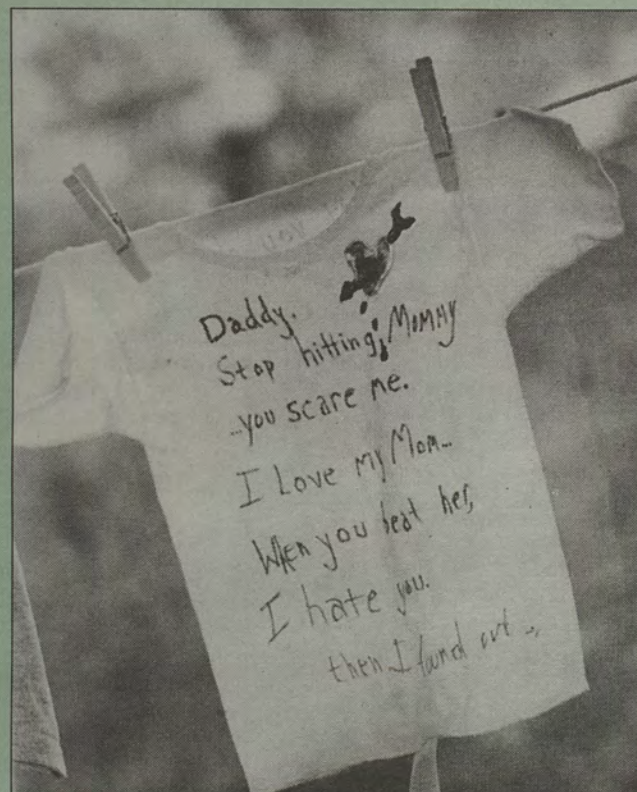 Daddy.
Stop hitting Mommy
...you scare me.
I Love my Mom...
When you beat her,
I hate you.
then I found out...